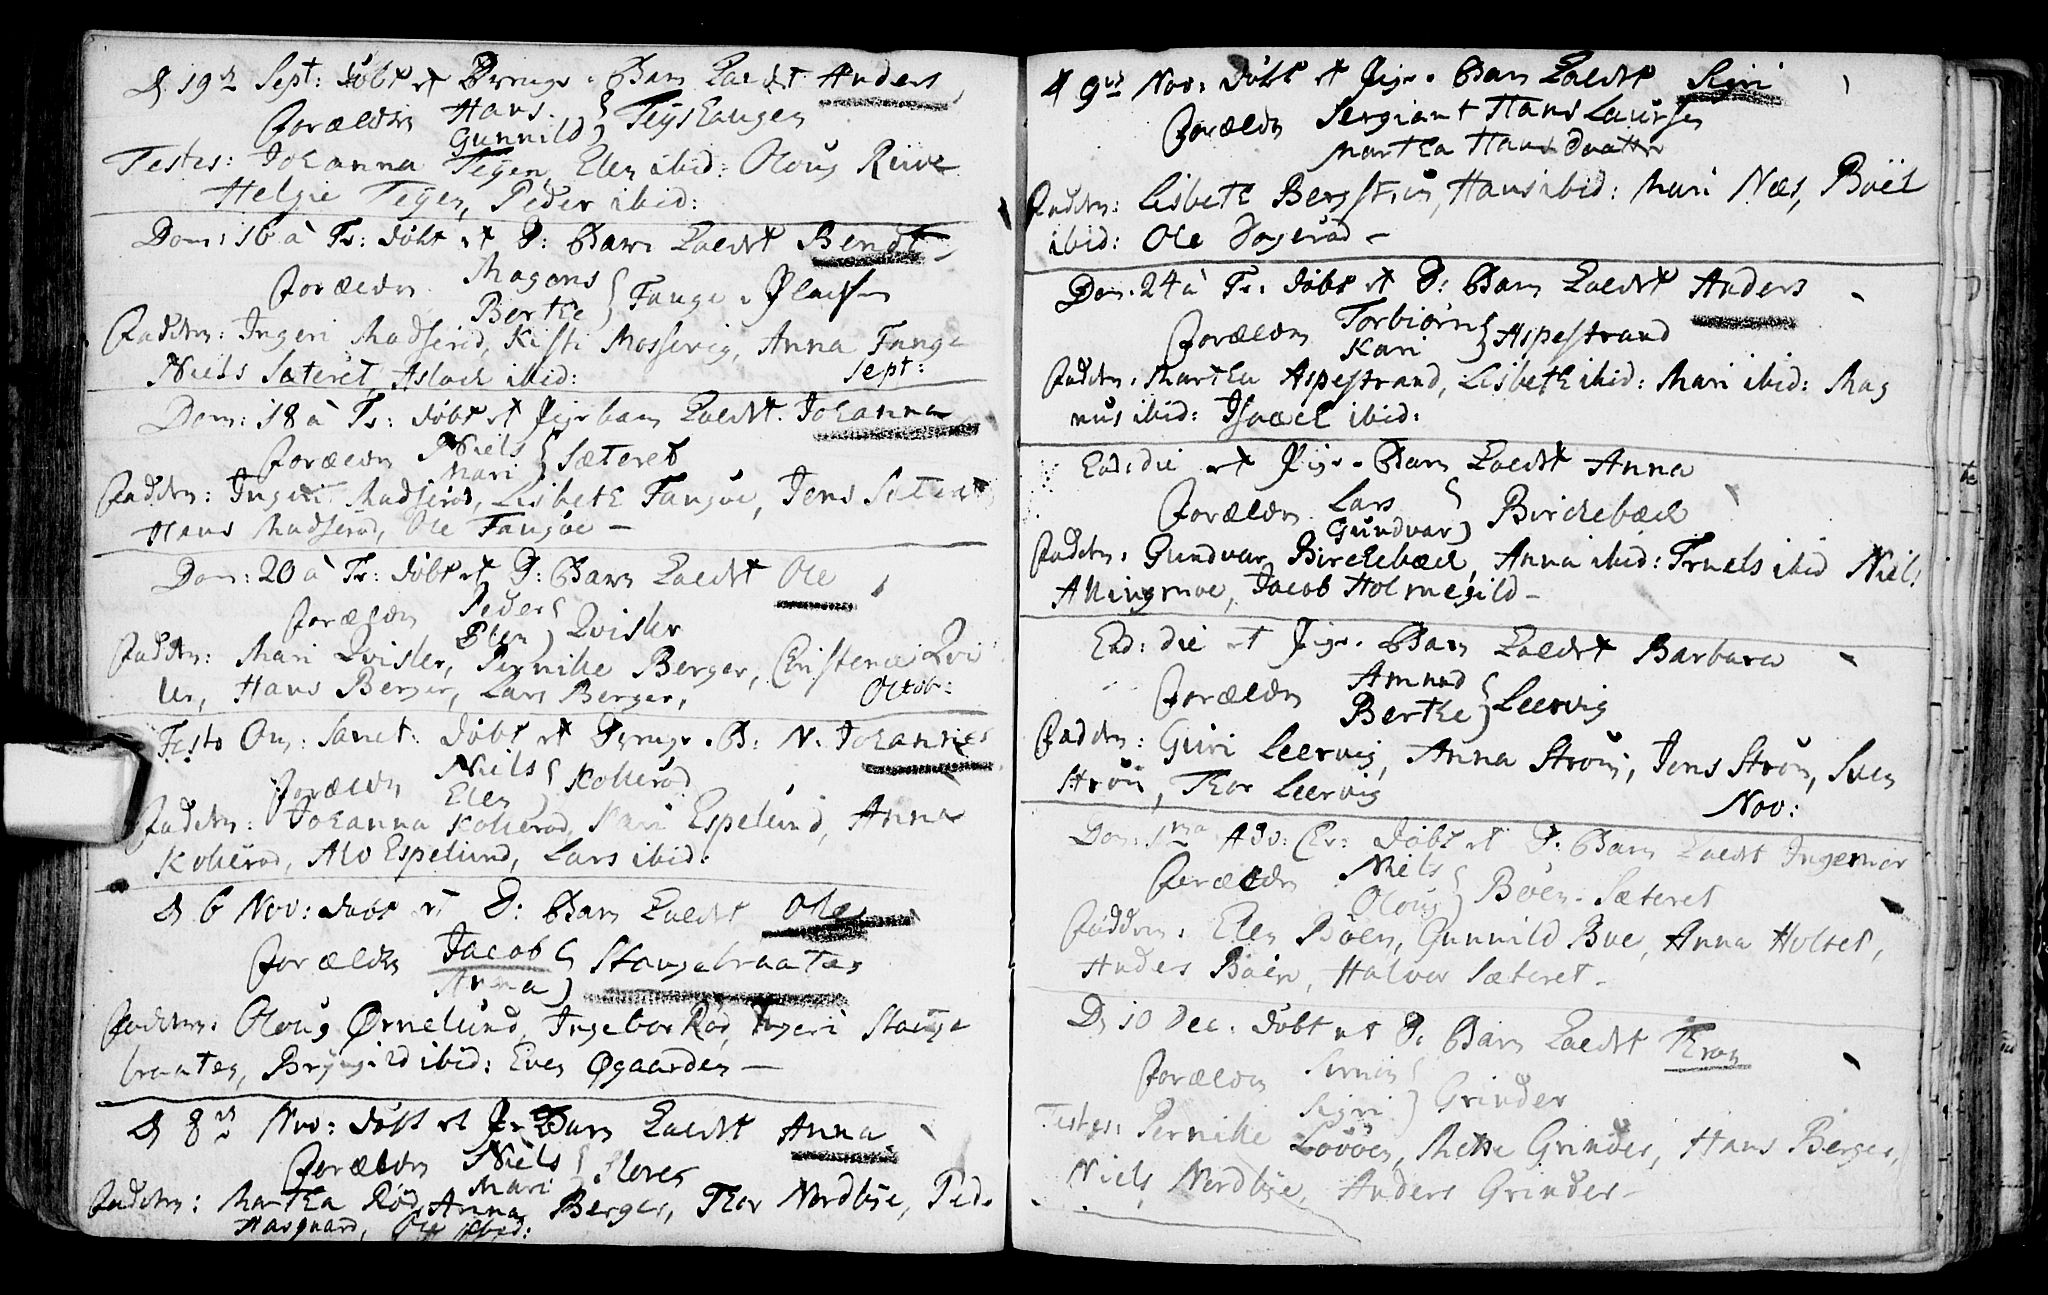 D 19de Sept: døbt et Drenge-Barn kaldet Anders
Forældre Hans
Gunnild } Teÿslaugen
Testes: Johanna Tegen, Elen ibid: Oloug Riive
Helgie Tegen, Peder ibid:
Dom: 16 à Tr: døbt et D: Barn kaldet Bendt
Forældre Magens
Berthe } Fange-Pladsen
Faddere: Ingeri Madserød, Kisti Mossevig, Anna Fange
Niels Sæteret, Aslach ibid: Sept:
Dom: 18 à Tr: døbt et Pigebarn kaldet Johanna
Forældre Niels
Mari } Sæteret
Faddere: Ingeri Madserød, Lisbeth Fangøe, Jens Sæteret
Hans Madserød, Ole Fangøe -
Dom: 20 à Tr: døbt et D: Barn kaldet Ole
Forældre Peder
Elen } Qvisler
Faddere: Mari Qvisler, Pernille Berger, Christence Qvi
ler, Hans Berger, Lars Berger, Octob:
Festo Om: Sanct: døbt et Drenge-B: N. Johannes
Forældre Niels
Elen } Kollerød
Faddere: Johanna Kollerød, Kari Espelund, Anna
Kollerød, Alv Espelund, Lars ibid:
D 6 Nov: døbt et D: Barn kaldet Ole
Forældre Jacob
Anna } Stangebraaten
Faddere: Oloug Ørnelund, Ingebor Rød, Ingeri Stange
braaten, Bryngild ibid: Even Øgaarden -
D 8de Nov: døbt et P: Barn kaldet Anna
Forældre Niels
Mari } Floren
Faddere: Martha Rød, Anna Berger, Thor Nordbye, Ped.
Hasgaard, Ole ibid:
D 9de Nov: døbt et Pige-Barn kaldet Sigri
Forældre Sergiant Hans Laursen
Martha Hansdaatter
Faddere: Lisbeth Bergstrøm, Hans ibid: Mari Næs, Boël
ibid: Ole Dagerød -
Dom. 24 à Tr: døbt et D: Barn kaldet Anders
Forældre Torbiørn
Kari } Aspestrand
Faddere: Martha Aspestrand, Lisbeth ibid: Mari ibid: Mag
nus ibid: Israel ibid:
Ead: die et Pige-Barn kaldet Anna
Forældre Lars
Gundvar } Birchebæch
Faddere: Gundvar Birchebæch, Anna ibid: Truels ibid Niels
Allingmoe, Jacob Holmegild -
Ead: die et Pige-Barn kaldet Barbara
Forældre Amund
Berthe } Leervig
Faddere: Guri Leervig, Anna Strøm, Jens Strøm, Sven
Strøm, Thor Leervig
Nov:
Dom: 1ma Adv: Chr: døbt et D: Barn kaldet Ingemar
Forældre Niels
Oloug } Böen-Sæteret
Faddere: Elen Böen, Gunnild Bue, Anna Holter,
Anders Böen, Halvor Sæteret -
D 10 Dec: døbt et D: Barn kaldet Thron
Forældre Simen
Sigri } Grinder
Testes: Pernille Lövöen, Mette Grinder, Hans Berger,
Niels Nordbye, Anders Grinder -